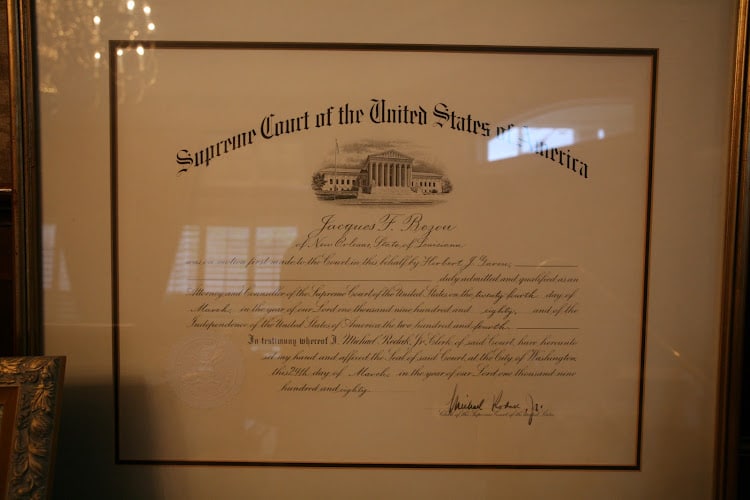 Supreme Court of the United States of America
Jacques F. Bezou
of New Orleans, State of Louisiana
was on motion first made to the Court in this behalf by Herbert J.
duly admitted and qualified as an
Attorney and Counsellor of the Supreme Court of the United States on the twenty fourth day of
March, in the year of our Lord one thousand nine hundred and eighty, and of the
Independence of the United States of America the two hundred and fourth.
In testimony whereof I, Michael Rodak, Jr., Clerk of said Court, have hereunto
set my hand and affixed the Seal of said Court, at the City of Washington,
this 24th day of March, in the year of our Lord one thousand nine
hundred and eighty.
Michael Rodak, Jr.
Clerk of the Supreme Court of the United States